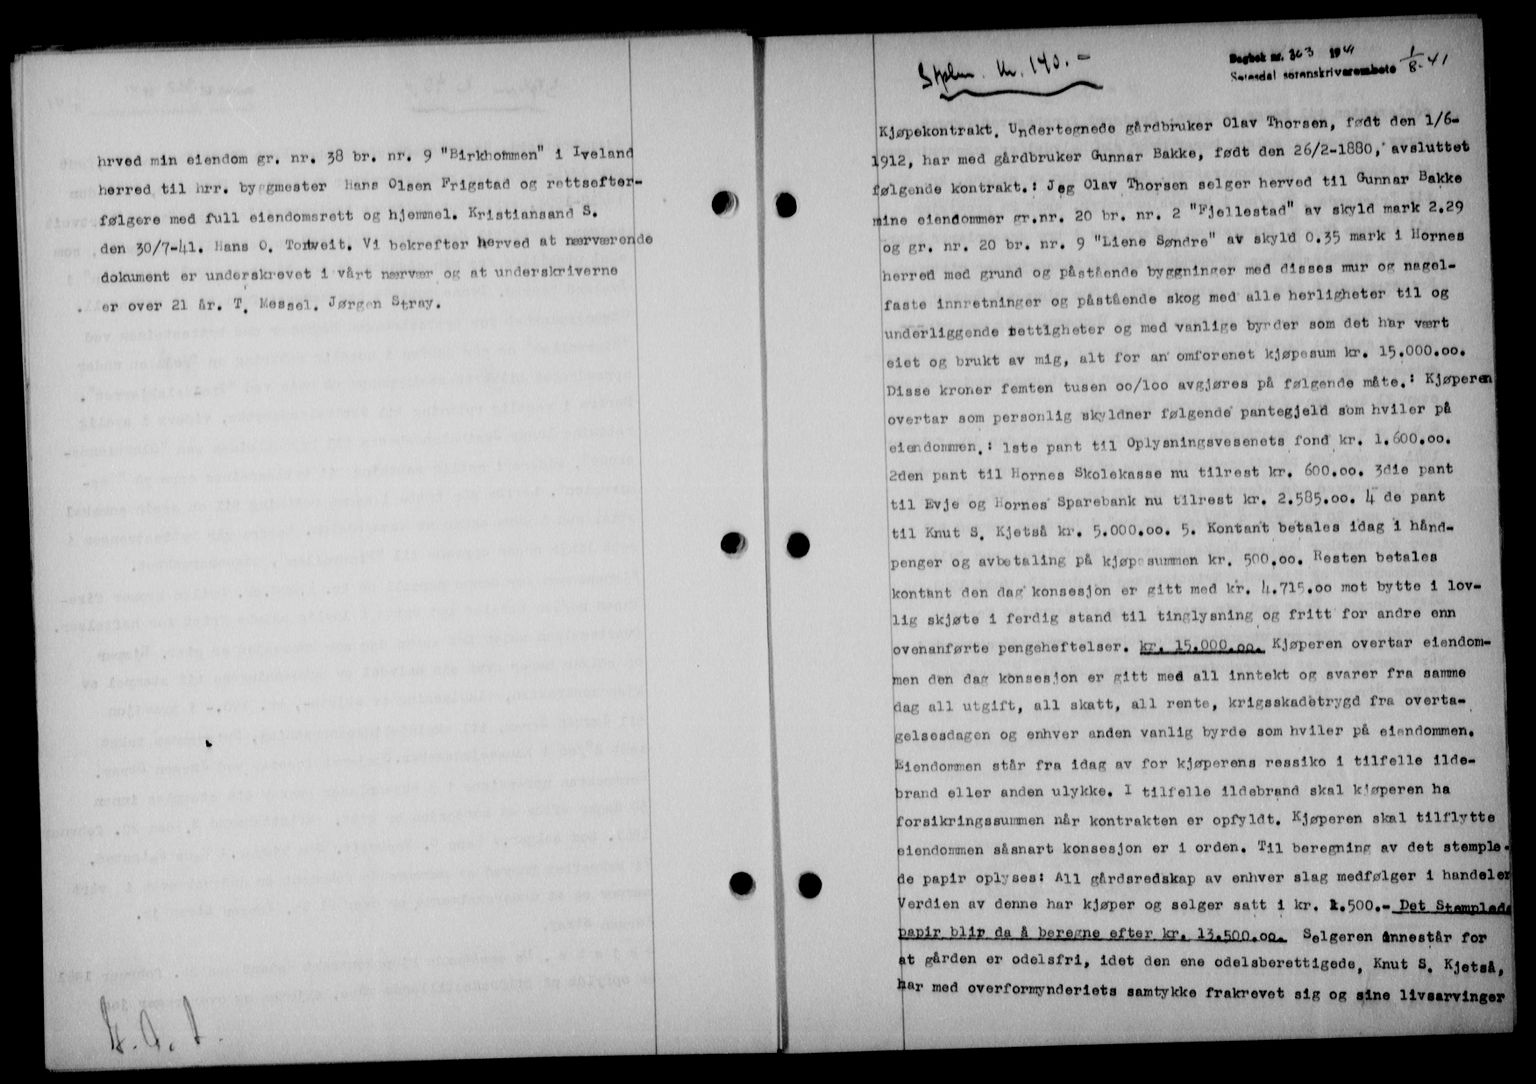 hrved min eiendom gr. nr. 38 br. nr. 9 "Birkhommen" i Iveland
herred til hrr. byggmester Hans Olsen Frigstad og rettsefter-
følgere med full eiendomsrett og hjemmel. Kristiansand S.
den 30/7-41. Hans O. Tortveit. Vi bekrefter herved at nærværende
dokument er underskrevet i vårt nærvær og at underskriverne
er over 21 år. T. Messel. Jørgen Stray.
Stplm. kr. 140.-
Dagbok nr. 303 1941
Setesdal sorenskriverembete 1/8-41
Kjøpekontrakt. Undertegnede gårdbruker Olav Thorsen, født den 1/6-
1912, har med gårdbruker Gunnar Bakke, født den 26/2-1880, avsluttet
følgende kontrakt.: Jeg Olav Thorsen selger herved til Gunnar Bakke
mine eiendommer gr.nr. 20 br. nr. 2 "Fjellestad" av skyld mark 2.29
og gr. nr. 20 br. nr. 9 "Liene Søndre" av skyld 0.35 mark i Hornes
herred med grund og påstående byggninger med disses mur og nagel-
faste innretninger og påstående skog med alle herligheter til og
underliggende rettigheter og med vanlige byrder som det har vært
eiet og brukt av mig, alt for an omforenet kjøpesum kr. 15.000.oo.
Disse kroner femten tusen oo/1oo avgjøres på følgende måte.: Kjøperen
overtar som personlig skyldner følgende pantegjeld som hviler på
eiendommen.: 1ste pant til Oplysningsvesenets fond kr. 1.600.oo.
2den pant til Hornes Skolekasse nu tilrest kr. 600.oo. 3die pant
til Evje og Hornes Sparebank nu tilrest kr. 2.585.oo. 4 de pant
til Knut S. Kjetså kr. 5.000.oo. 5. Kontant betales idag i hånd-
penger og avbetaling på kjøpesummen kr. 500.oo. Resten betales
kontant den dag konsesjon er gitt med kr. 4.715.oo mot bytte i lov-
lig skjøte i ferdig stand til tinglysning og fritt for andre enn
ovenanførte pengeheftelser. kr. 15.000.oo. Kjøperen overtar eiendom-
men den dag konsesjon er gitt med all inntekt og svarer fra samme
dag all utgift, all skatt, all rente, krigsskadetrygd fra overta-
gelsesdagen og enhver anden vanlig byrde som hviler på eiendommen.
Eiendommen står fra idag av for kjøperens ressiko i tilfelle ilde-
brand eller anden ulykke. I tilfelle ildebrand skal kjøperen ha
forsikringssummen når kontrakten er opfyldt. Kjøperen skal tilflytte
eiendommen såsnart konsesjon er i orden. Til beregning av det stemple-
de papir oplyses: All gårdsredskap av enhver slag medfølger i handelen
Verdien av denne har kjøper og selger satt i kr. 1.500.- Det Stamplede
papir blir da å beregne efter kr. 13.500.oo. Selgeren innestår for
at gården er odelsfri, idet den ene odelsberettigede, Knut S. Kjetså,
har med overformynderiets samtykke frakrevet sig og sine livsarvinger